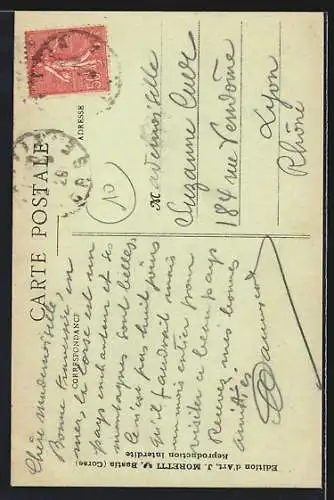 CARTE POSTALE
CORRESPONDANCE
ADRESSE
Chère Mademoiselle,
Bonne Traversée, en
mer, la Corse est un
pays enchanteur et ses
montagnes sont belles.
Ce n'est pas huit jours
qu'il faudrait mais
un mois entier pour
visiter ce beau pays
Recevez mes bonnes
amitiés.
Mademoiselle
Suzanne
184 rue Vendôme
Lyon
Rhône
10
Edition d'Art. J. MORETTI, Bastia (Corse)
Reproduction interdite